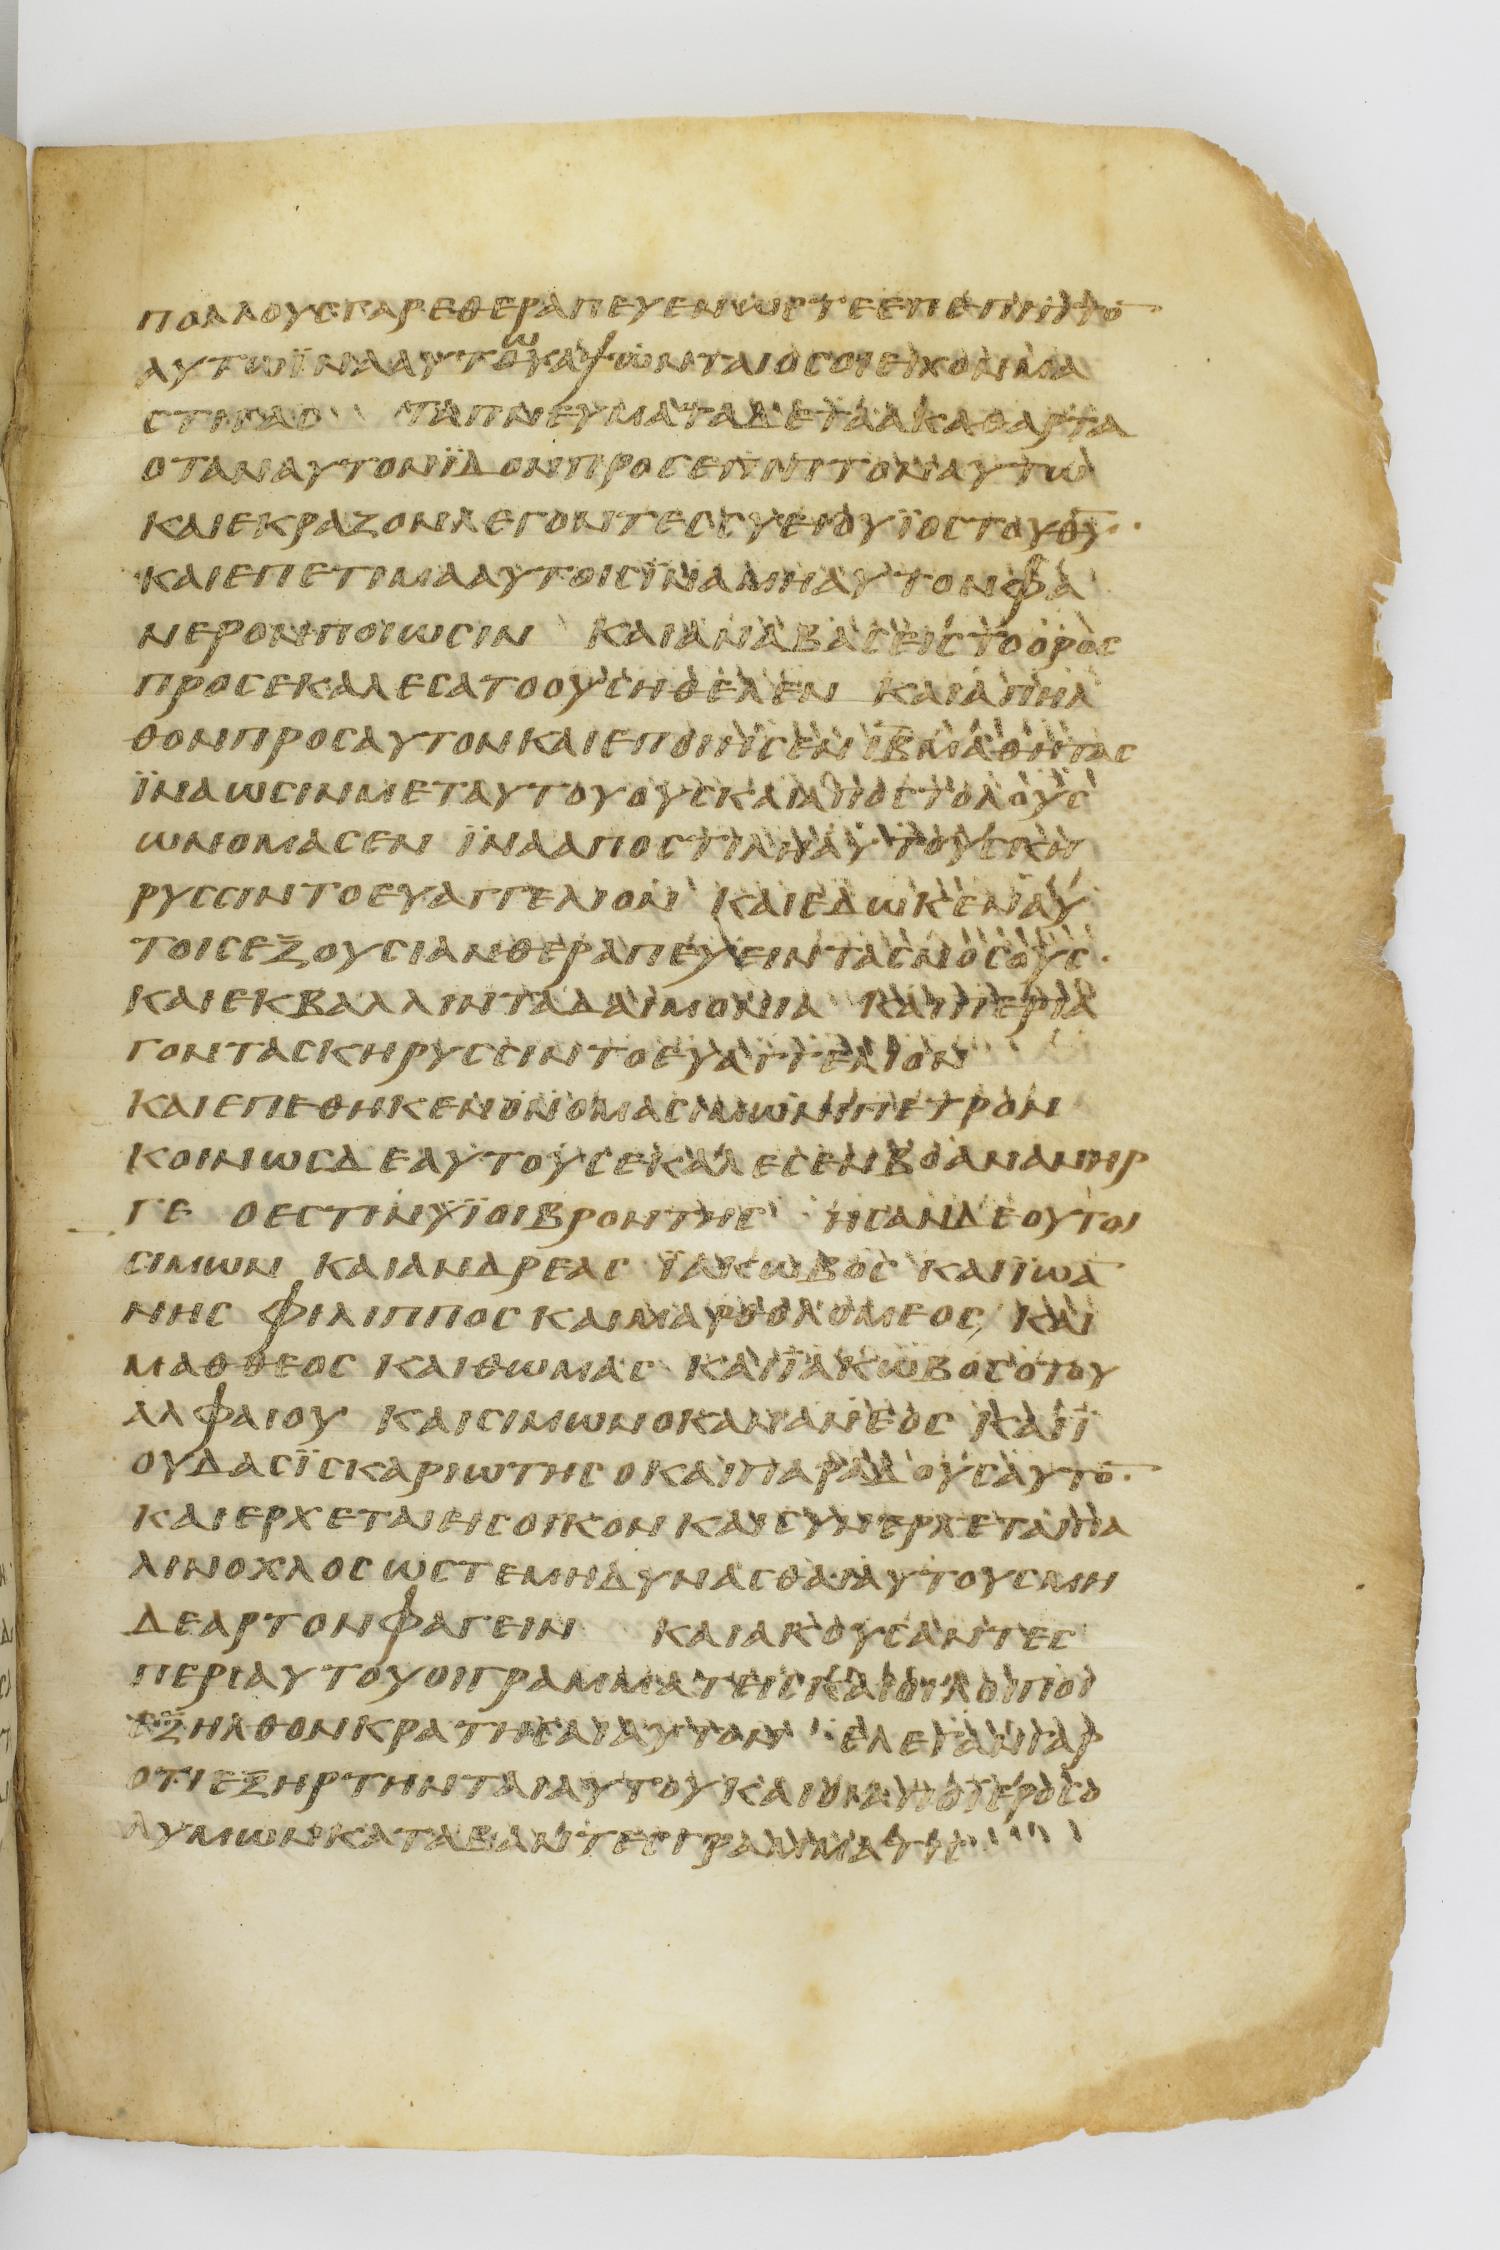 ΠΟΛΛΟΥΣΓΑΡΕΘΕΡΑΠΕΥΕΝΩΣΤΕΕΠΕΠΙΠΤΟ̅
ΑΥΤΩΪΝΑΑΥΤΟΥΑΨΩΝΤΑΙΟΣΟΙΕΙΧΟΝΜΑ
ΣΤΙΓΑΣ ΤΑΠΝΕΥΜΑΤΑΔΕΤΑΑΚΑΘΑΡΤΑ
ΟΤΑΝΑΥΤΟΝΪΔΟΝΠΡΟΣΕΠΙΠΤΟΝΑΥΤΩ
ΚΑΙΕΚΡΑΖΟΝΛΕΓΟΝΤΕΣΣΥΕΙΟΥΪΟΣΤΟΥΘ̅Υ̅·
ΚΑΙΕΠΕΤΙΜΑΑΥΤΟΙΣΪΝΑΜΗΑΥΤΟΝΦΑ
ΝΕΡΟΝΠΟΙΩΣΙΝ ΚΑΙΑΝΑΒΑΣΕΙΣΤΟΟΡΟΣ
ΠΡΟΣΕΚΑΛΕΣΑΤΟΟΥΣΗΘΕΛΕΝ ΚΑΙΑΠΗΛ
ΘΟΝΠΡΟΣΑΥΤΟΝΚΑΙΕΠΟΙΗΣΕΝΙ̅Β̅ΜΑΘΗΤΑΣ
ΪΝΑΩΣΙΝΜΕΤΑΥΤΟΥΟΥΣΚΑΙΑΠΟΣΤΟΛΟΥΣ
ΩΝΟΜΑΣΕΝ ΪΝΑΑΠΟΣΤΙΛΗΑΥΤΟΥΣΚΗ
ΡΥΣΣΙΝΤΟΕΥΑΓΓΕΛΙΟΝ ΚΑΙΕΔΩΚΕΝΑΥ
ΤΟΙΣΕΞΟΥΣΙΑΝΘΕΡΑΠΕΥΕΙΝΤΑΣΝΟΣΟΥΣ·
ΚΑΙΕΚΒΑΛΛΙΝΤΑΔΑΙΜΟΝΙΑ ΚΑΙΠΕΡΙΑ
ΓΟΝΤΑΣΚΗΡΥΣΣΙΝΤΟΕΥΑΓΓΕΛΙΟΝ
ΚΑΙΕΠΕΘΗΚΕΝΟΝΟΜΑΣΙΜΩΝΙΠΕΤΡΟΝ
ΚΟΙΝΩΣΔΕΑΥΤΟΥΣΕΚΑΛΕΣΕΝΒΟΑΝΑΝΗΡ
ΓΕ ΟΕΣΤΙΝΥΪΟΙΒΡΟΝΤΗΣ ΗΣΑΝΔΕΟΥΤΟΙ
ΣΙΜΩΝ ΚΑΙΑΝΔΡΕΑΣ ΪΑΚΩΒΟΣ ΚΑΙΪΩΑ
ΝΗΣ ΦΙΛΙΠΠΟΣΚΑΙΜΑΡΘΟΛΟΜΕΟΣ ΚΑΙ
ΜΑΘΘΕΟΣ ΚΑΙΘΩΜΑΣ ΚΑΙΪΑΚΩΒΟΣΟΤΟΥ
ΑΛΦΑΙΟΥ ΚΑΙΣΙΜΩΝΟΚΑΝΑΝΕΟΣ ΚΑΙΪ
ΟΥΔΑΣΪΣΚΑΡΙΩΤΗΣΟΚΑΙΠΑΡΑΔΟΥΣΑΥΤΟ̅·
ΚΑΙΕΡΧΕΤΑΙΕΙΣΟΙΚΟΝΚΑΙΣΥΝΕΡΧΕΤΑΙΠΑ
ΛΙΝΟΧΛΟΣΩΣΤΕΜΗΔΥΝΑΣΘΑΙΑΥΤΟΥΣΜΗ
ΔΕΑΡΤΟΝΦΑΓΕΙΝ ΚΑΙΑΚΟΥΣΑΝΤΕΣ
ΠΕΡΙΑΥΤΟΥΟΙΓΡΑΜΜΑΤΕΙΣΚΑΙΟΙΛΟΙΠΟΙ
ΕΞΗΛΘΟΝΚΡΑΤΗΣΑΙΑΥΤΟΝ ΕΛΕΓΑΝΓΑΡ
ΟΤΙΕΞΗΡΤΗΝΤΑΙΑΥΤΟΥΚΑΙΟΙΑΠΟΙΕΡΟΣΟ
ΛΥΜΩΝΚΑΤΑΒΑΝΤΕΣΓΡΑΜΜΑΤΙΣ